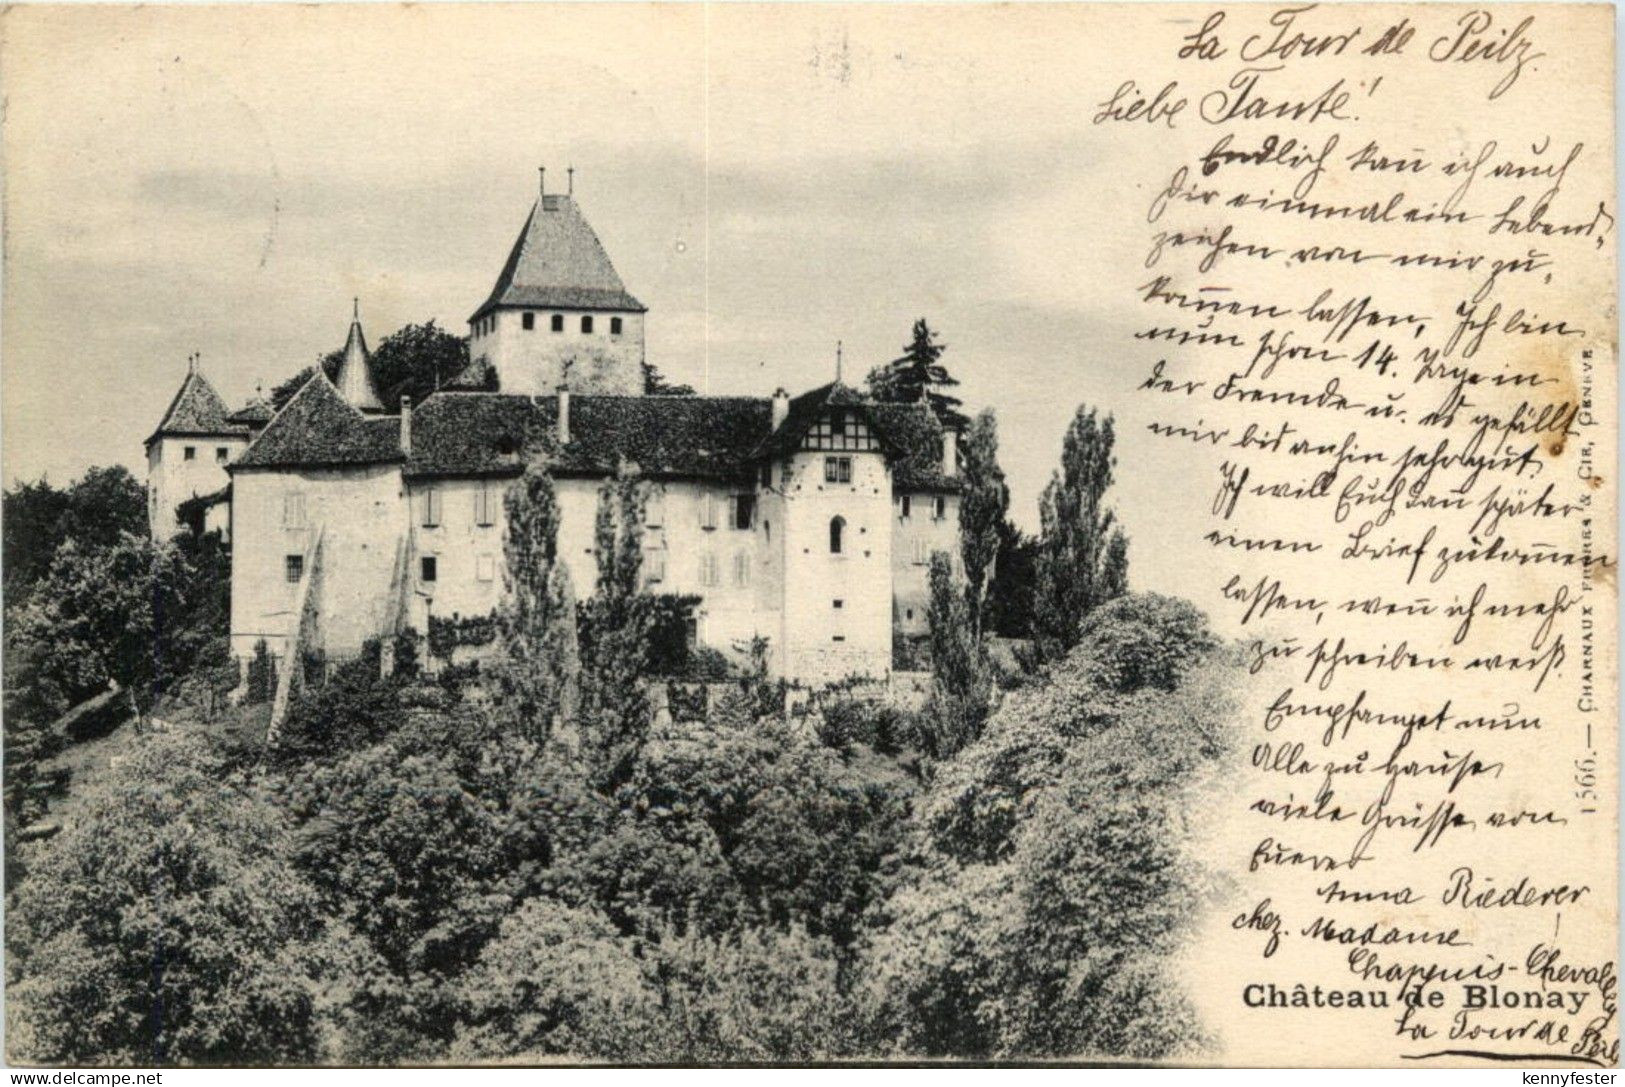 La Tour de Peilz.
Liebe Tante!
Endlich kan̄ ich auch
Dir einmal ein Lebens-
zeichen von mir zu-
kom̄en lassen, Ich bin
nun schon 14. Tage in
der Fremde u. es gefällt
mir bis anhin sehr gut.
Ich will Euch dan̄ später
einen Brief zukom̄en
lassen, wen̄ ich mehr
zu schreiben weiß.
Empfanget nun
Alle zu Hause
viele Grüsse von
Euerer
Anna Riederer
chez. Madame
Chappuis-Chevalley
La Tour de Peilz
Château de Blonay
1566. — CHARNAUX FRÈRES & CIE, GENÈVE
https://www.delcampe.net
kennyfester